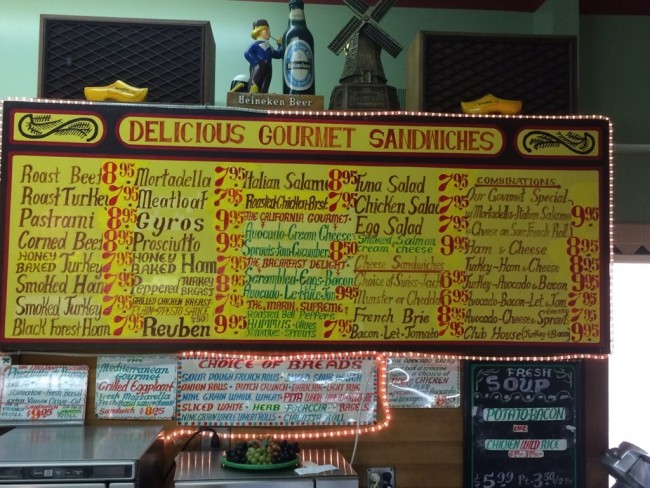 Heineken Beer
DELICIOUS GOURMET SANDWICHES
Roast Beef 8.95
Roast Turkey 7.95
Pastrami 8.95
Corned Beef 8.95
HONEY BAKED Turkey
Smoked Ham
Smoked Turkey 7.95
Black Forest Ham 7.95
Mortadella 7.95
Meatloaf 7.95
Gyros 9.95
Prosciutto
HONEY BAKED Ham
Turkey
Peppered Breast
GRILLED CHICKEN BREAST
Reuben 9.95
Italian Salami 8.95
Roasted Chicken Brst. 7.95
THE CALIFORNIA GOURMET
Avocado-Cream Cheese
Sprouts-Tom-Cucumber 8.95
THE BREAKFAST DELIGHT
Scrambled-Eggs-Bacon
Avocado-Lettuce-Jack 9.95
THE MARIN SUPREME
Roasted Bell Peppers
HUMMUS-OLIVES
Tomatoes-Sprouts 7.95
Tuna Salad 7.95
Chicken Salad 7.95
Egg Salad 7.95
Smoked Salmon
cream cheese 9.95
Cheese Sandwiches
Choice of Swiss-Jack
Munster or Cheddar 6.95
French Brie 8.95
Bacon-Let-Tomato 7.95
COMBINATIONS
Our Gourmet Special
w/Mortadella-Italian Salame
Cheese on San French Roll 9.95
Ham & Cheese 8.95
Turkey-Ham & Cheese 8.95
Turkey-Avocado & Bacon 9.95
Avocado-Bacon-Let-Jam 7.95
Avocado-Cheese-Sprout 7.95
Club House (Turkey & Bacon) 9.95
Mediterranean Gourmet
Grilled Eggplant
Fresh Mozzarella
Sandwich $8.95
CHOICE OF BREADS
SOUR DOUGH FRENCH ROLLS
ONION ROLLS DUTCH CRUNCH
NINE GRAIN WHOLE WHEAT PITA
SLICED WHITE HERB FOCACCIA BAGELS
FRESH
SOUP
POTATO-BACON
CHICKEN WILD RICE
$5.99 Pt. 3.50 1/2 Pt.